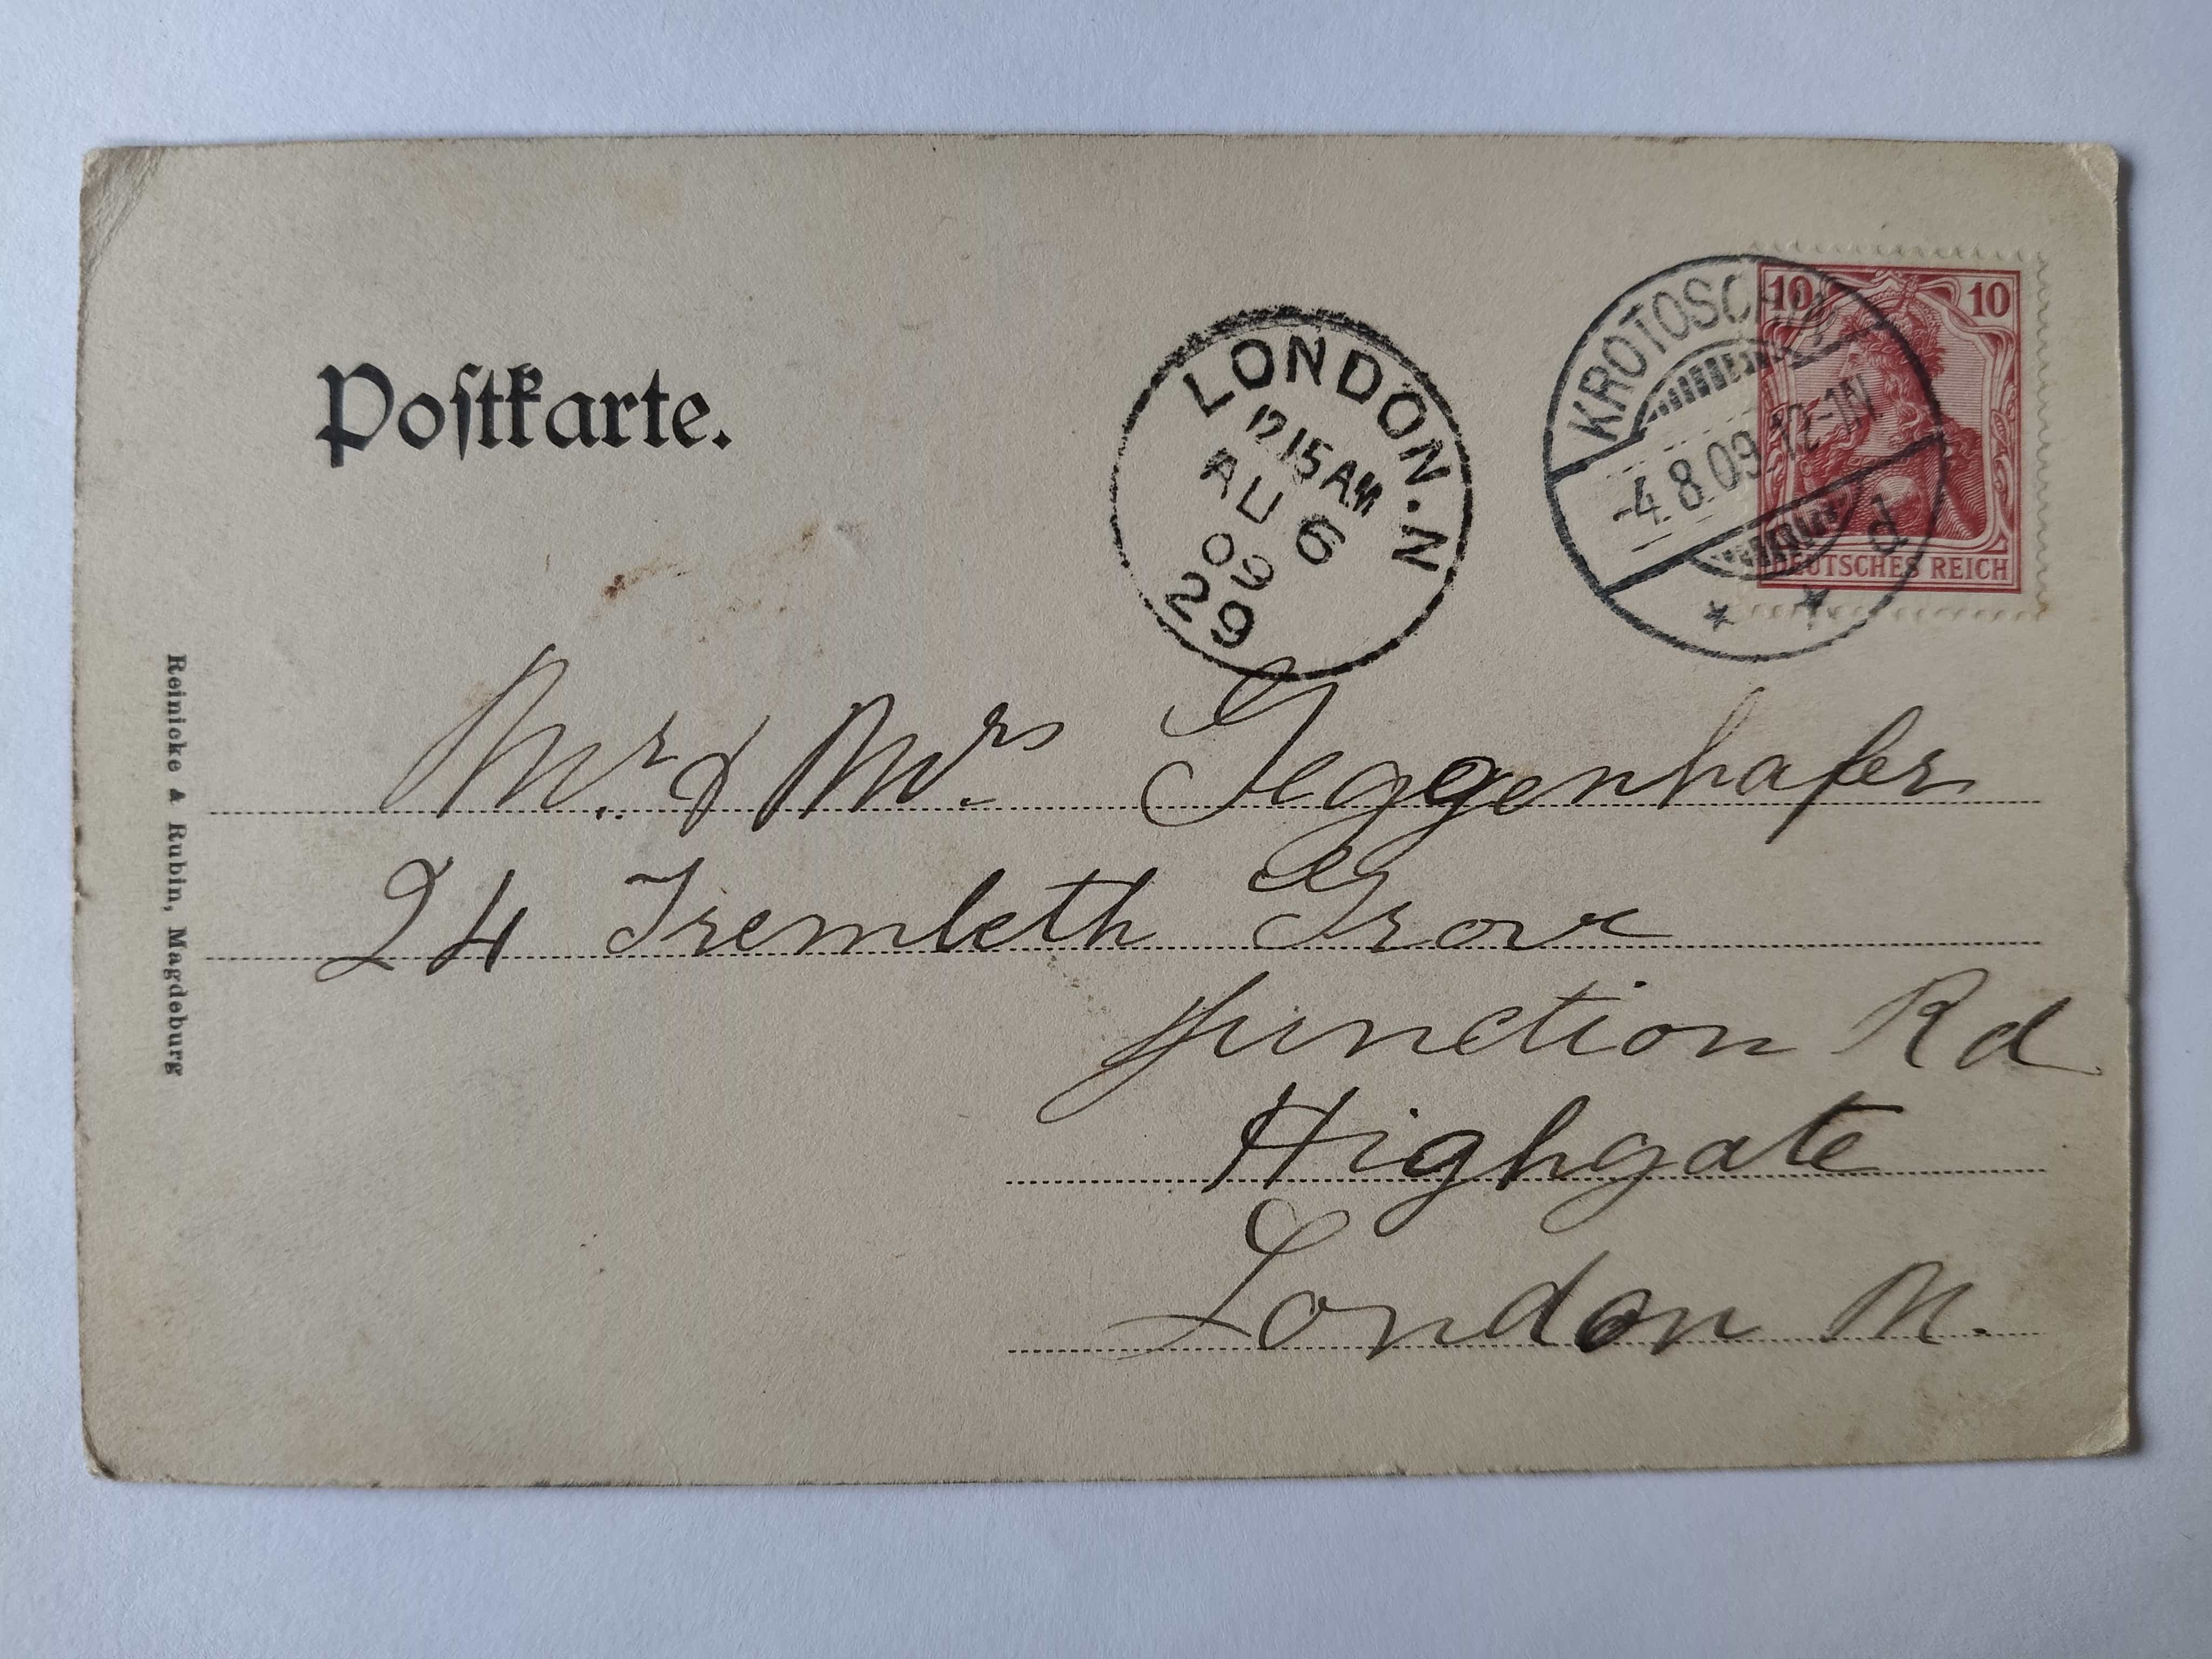 Poſtkarte.
LONDON.N
12 15 AM
AU 6
09
29
KROTOSCHIN
-4.8.09.12-1N
d
10 10
DEUTSCHES REICH
Mr. & Mrs. Geggenhafer
24 Tremleth Grove
Junction Rd
Highgate
London N.
Reinicke & Rubin, Magdeburg